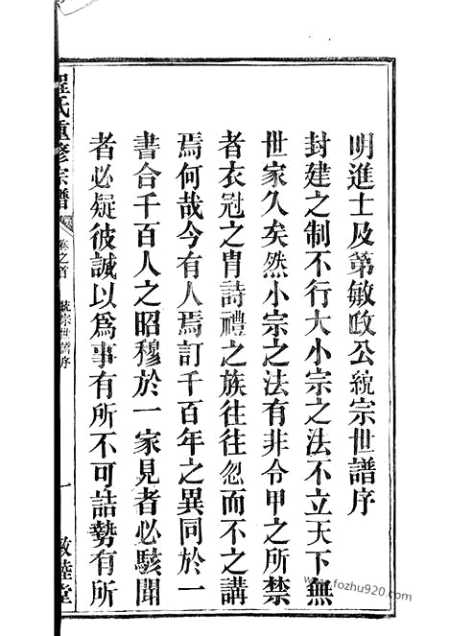 明進士及第敏政公統宗世譜序
封建之制不行大小宗之法不立天下無
世家久矣然小宗之法有非令甲之所禁
者衣冠之胄詩禮之族往往忽而不之講
焉何哉今有人焉訂千百年之異同於一
書合千百人之昭穆於一家見者必駭聞
者必疑彼誠以為事有所不可詰勢有所
程氏重修宗譜
卷之首
統宗世譜序
一
敦睦堂
www.fozhu920.com